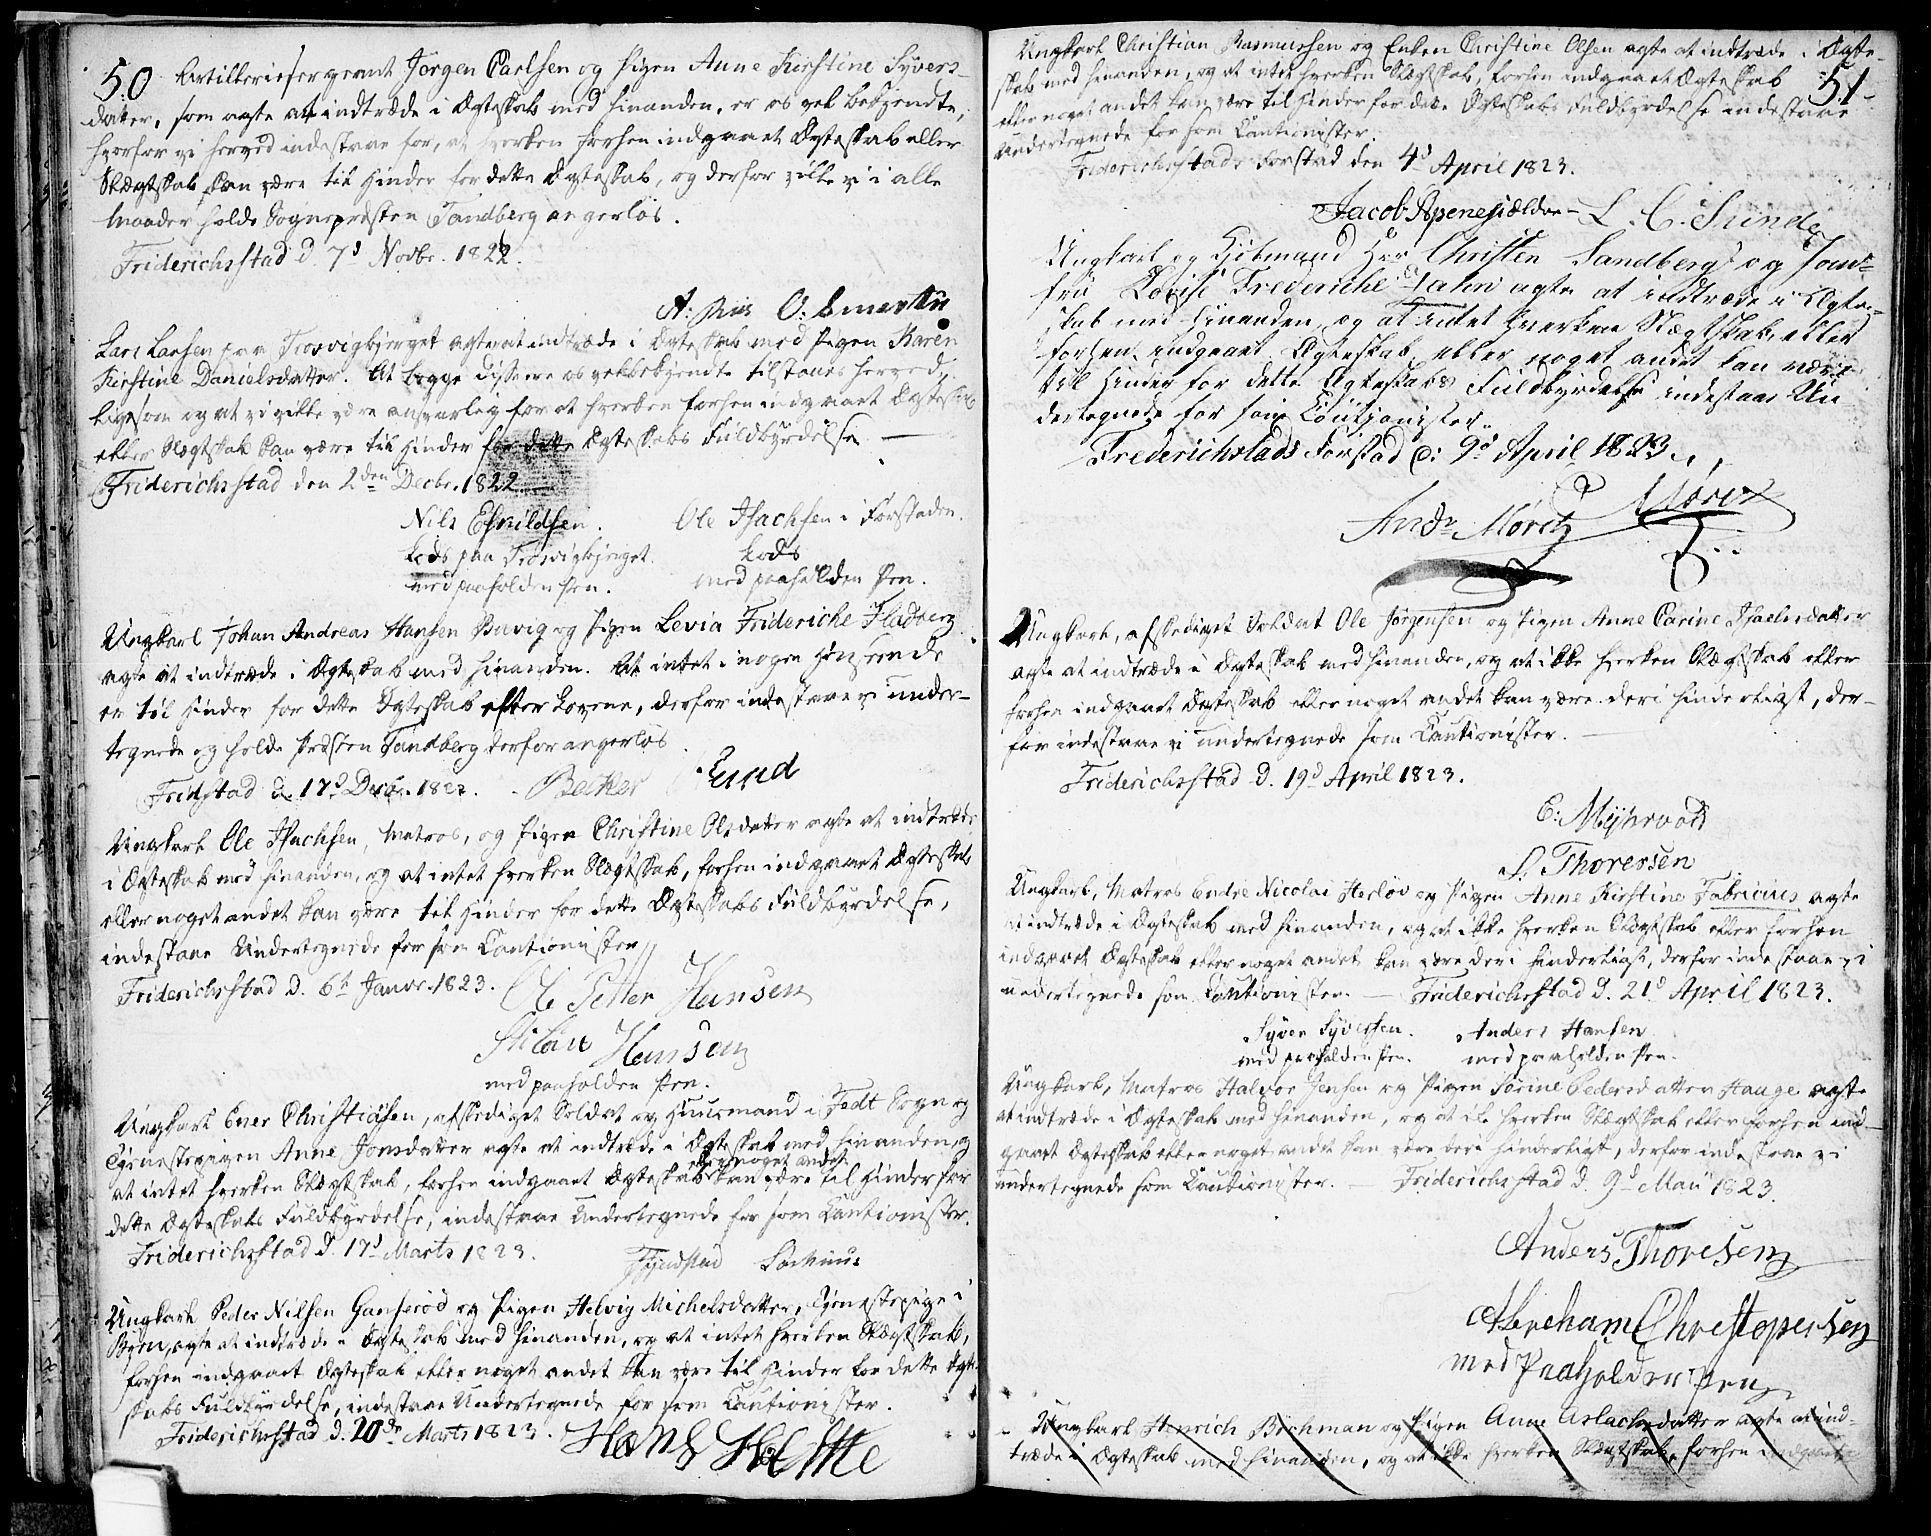 50
Artillerisergeant Jörgen Carlsen og Pigen Anne Kirstine Syvers-
datter, som agte at indtræde i Ægteskab med hinanden, er os vel bekjendte,
hvorfor vi herved indestaae for, at hverken forhen indgaaet Ægteskab eller
Slægtskab kan være til Hinder for dette Ægteskab, og derfor ville vi i alle
Maader holde Sognepresten Tandberg angerløs.
Friderichsstad d. 7d Novbr. 1822.
Lars Larsen paa Trosvigbjerget agter at indtræde i Ægteskab med Pigen Karen
Kirstine Danielsdatter. At begge disse ere os velbekjendte tilstaaes herved,
ligesom og at vi ville være ansvarlig for at hverken forhen indgaaet Ægteskab
eller Slægtskab kan være til Hinder for dette Ægteskabs Fuldbyrdelse. —
Friderichsstad den 2den Decbr. 1822. —
Nils Eskildsen. Ole Isachsen i Forstaden.
Lods paa Trosvigbjerget. Lods
med paaholden Pen. med paaholden Pen.
Ungkarl Johan Andreas Hansen Buvig og Pigen Levia Frideriche Fladberg
agte at indtræde i Ægteskab med hinanden. At intet i nogen Henseende
er til Hinder for dette Ægteskab efter Lovene, derfor indestaae vi under-
tegnede og holde Presten Tandberg derfor angerløs.
Fridstad d. 17d Decbr. 1822. Becker Lund
Ungkarl Ole Isachsen, Matros, og Pigen Christine Olsdatter agte at indtræde
i Ægteskab med hinanden, og at intet hverken Slægtskab, forhen indgaaet Ægteskab
eller noget andet kan være til Hinder for dette Ægteskabs Fuldbyrdelse,
indestaae Undertegnede for som Cautionister
Friderichsstad d. 6t Januar 1823. Ole Petter Hansen
Hansen
med paaholden Pen.
Ungkarl Ener Christiasen, afskediget Soldat og Huusmand i Tedt Sogn og
Tjenestepigen Anne Jonsdatter agte at indtræde i Ægteskab med hinanden, og
eller noget andet
at intet hverken Slægtskab, forhen indgaaet Ægteskab kan være til Hinder for
dette Ægteskabs Fuldbyrdelse, indestaae Undertegnede for som Cautionister.
Friderichsstad d. 17d Marts 1823.
Ungkarl Peder Nilsen Ganserød og Pigen Helvig Michelsdatter, Tjenestepige i
Byen, agte at indtræde i Ægteskab med hinanden, og at intet hverken Slægtskab,
forhen indgaaet Ægteskab eller noget andet kan være til Hinder for dette Ægte-
skabs Fuldbyrdelse, indestaae Undertegnede for som Cautionister.
Friderichsstad d. 20de Marts 1823. Hans
51
Ungkarl Christian Rasmussen og Enken Christine Olsen agte at indtræde i Ægte-
skab med hinanden, og at intet hverken Slægtskab, forhen indgaaet Ægteskab
eller noget andet kan være til Hinder for dette Ægteskabs Fuldbyrdelse indestaae
Undertegnede for som Cautionister.
Friderichsstads Forstad den 4d April 1823.
Jacob Apenesjældre – L. C. Sunde
Ungkarl og Kjøbmand Herr Christen Sandberg og Jom-
fru Lovise Frederiche agte at indtræde i Ægte-
skab med Hinanden, og at intet hverken Slægtskab, eller
forhen indgaaet Ægteskab, eller noget andet kan være
til Hinder for dette Ægteskabs Fuldbyrdelse indestaar Un-
dertegnede for som Cautionister.
Frederichstads Forstad d: 9d April 1823.
Andr Moretz Moretz
Ungkarl, afskediget Soldat Ole Jörgensen og Pigen Anne Carine Isaelsdatter
agte at indtræde i Ægteskab med hinanden, og at ikke hverken Slægtskab eller
forhen indgaaet Ægteskab eller noget andet kan være deri hinderligt, der-
for indestaae vi undertegnede som Cautionister. —
Friderichsstad d. 19d April 1823.
C: Mijhrvold
S. Thoressen
Ungkarl, Matros Endre Nicolai Herlov og Pigen Anne Kirstine Fabricius agte
at indtræde i Ægteskab med hinanden, og at ikke hverken Slægtskab eller forhen
indgaaet Ægteskab eller noget andet kan være deri hinderligt, derfor indestaae vi
undertegnede som Cautionister. — Friderichsstad d. 21d April 1823.
Syver Syversen. Anders Hansen
med paaholden Pen. med paaholden Pen.
Ungkarl, Matros Halvor Jensen og Pigen Sörine Pedersdatter Hauge agte
at indtræde i Ægteskab med hinanden, og at ike hverken Slægtskab eller forhen ind-
gaaet Ægteskab eller noget andet kan være deri hinderligt, derfor indestaae vi
undertegnede som Cautionister. — Friderichsstad d. 9d Maii 1823.
Anders Thoresen
Abreham Christopersen
med Paaholden Pen
Ungkarl Henrich Bochman og Pigen Anne Aslachsdatter agte at ind-
træde i Ægteskab med hinanden, og at ikke hverken Slægtskab, forhen indgaaet